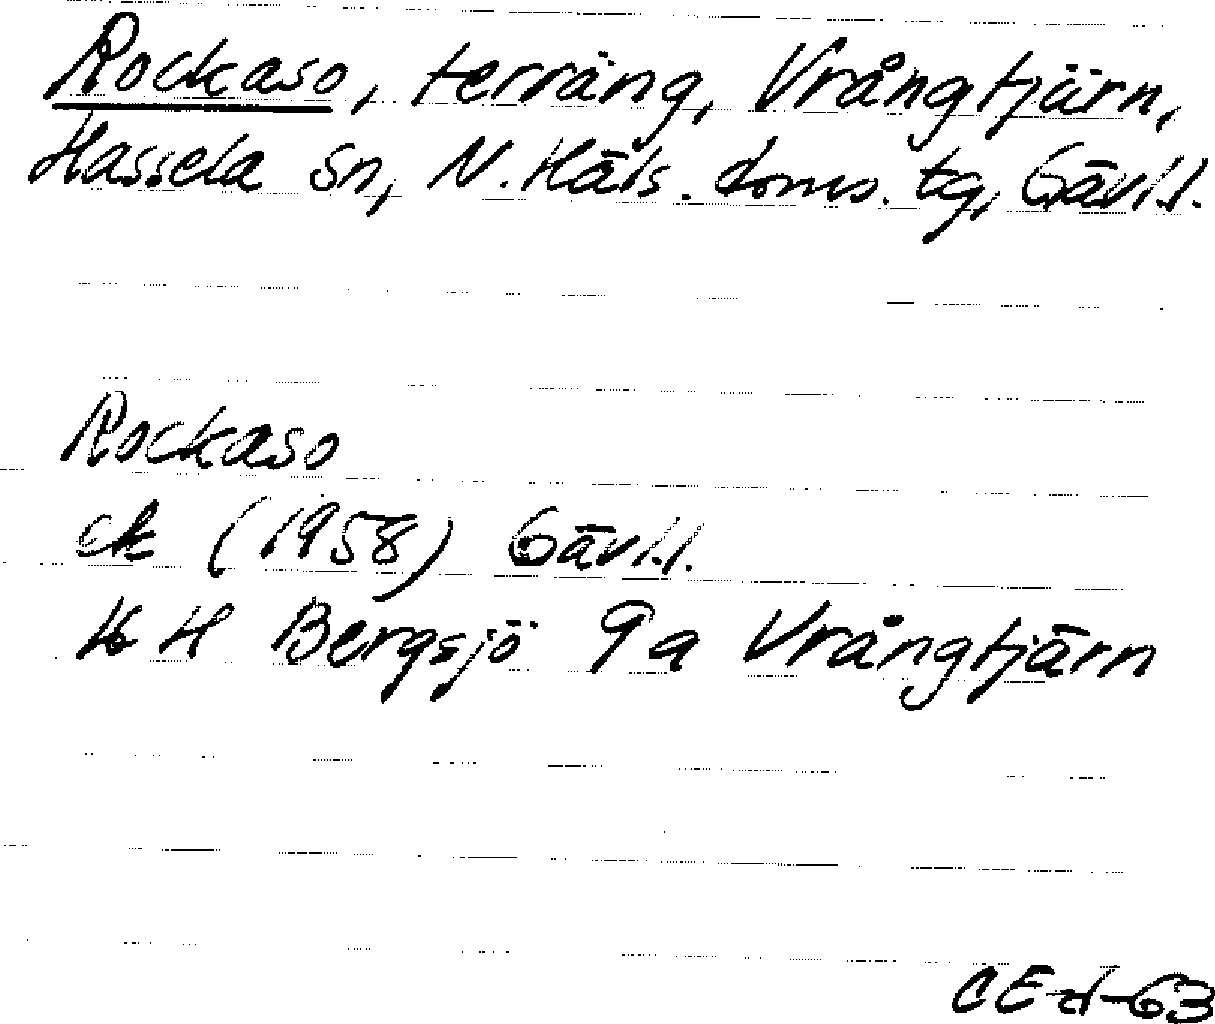 Rockaso, terräng, Vrångtjärn,
Hassela sn, N. Häls. doms. tg, Gävl.l.
Rockaso
ek (1958) Gävl.l.
H Bergsjö 9a Vrångtjärn